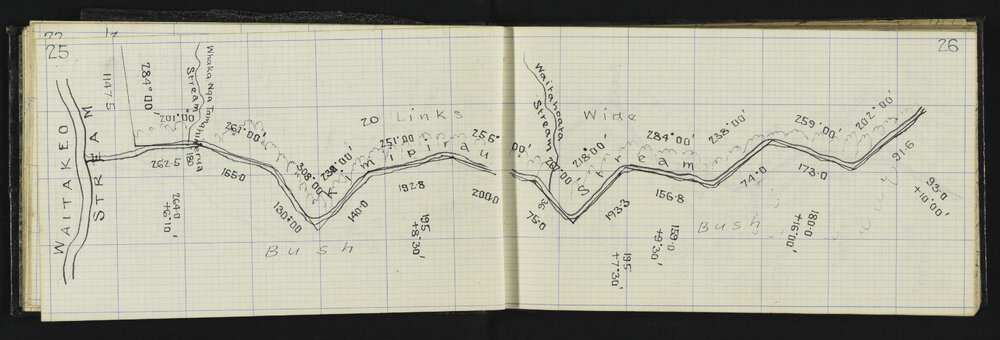 25
WAITAKEO
STREAM
1147.5
284°00'
Whaka Nga Tamahinerua
Stream
102°00'
262.5
180
264.0
+6°10'
261°00'
165.0
308°00'
130.00
140.0
20 Links
251°00'
256°00'
Kimipirau
192.8
195
+8°30'
200.0
Bush
26
Waitahoata
Stream
Wide
218°00'
Stream
36
75.0
193.3
195
+7°30'
284°00'
156.8
159.0
+9°30'
238°00'
74.0
Bush
259°00'
173.0
180.0
+16°00'
202°00'
91.6
93.0
+10°00'